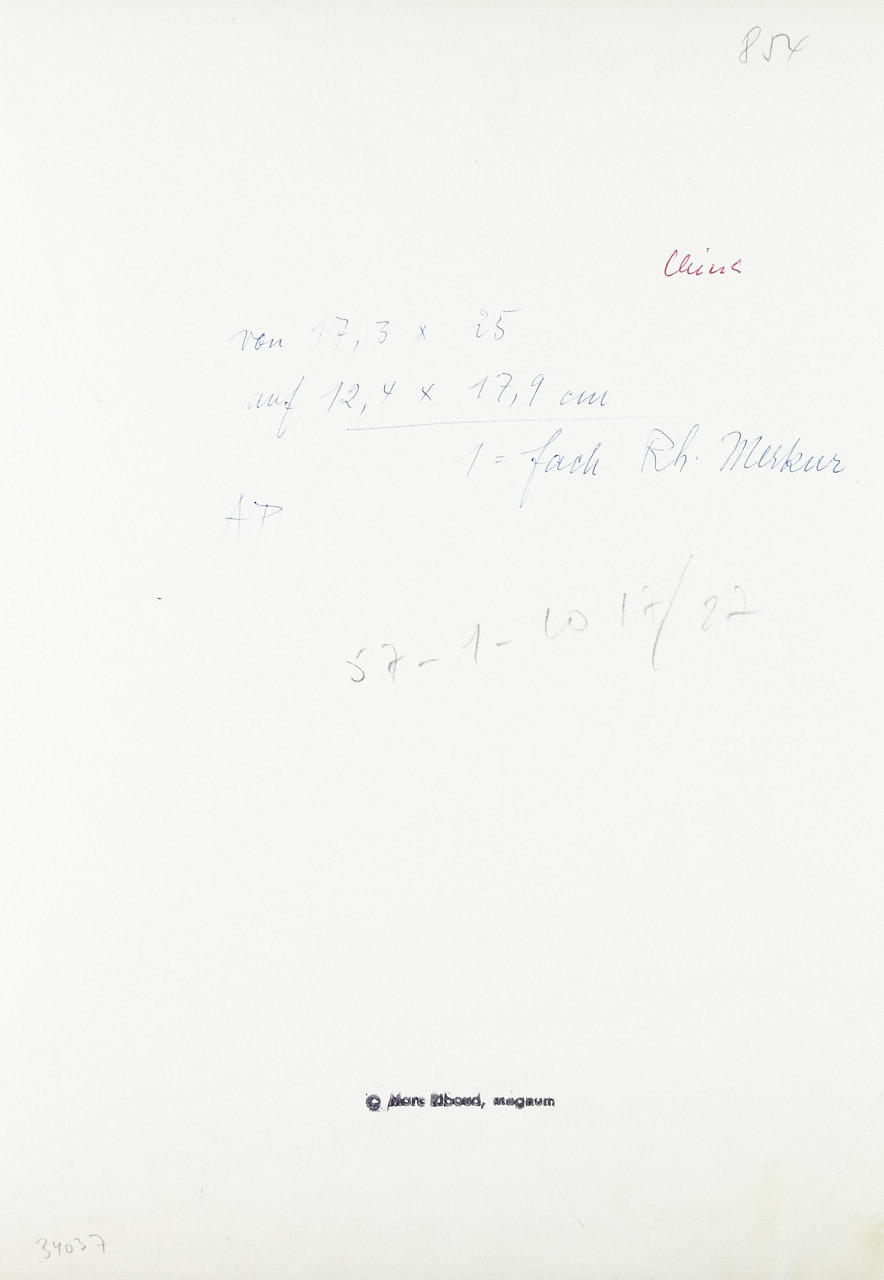 854
China
von 17,3 x 25
auf 12,4 x 17,9 cm
1 = fach Rh. Merkur
AP
57-1-10 17/27
© Marc Riboud, magnum
34037